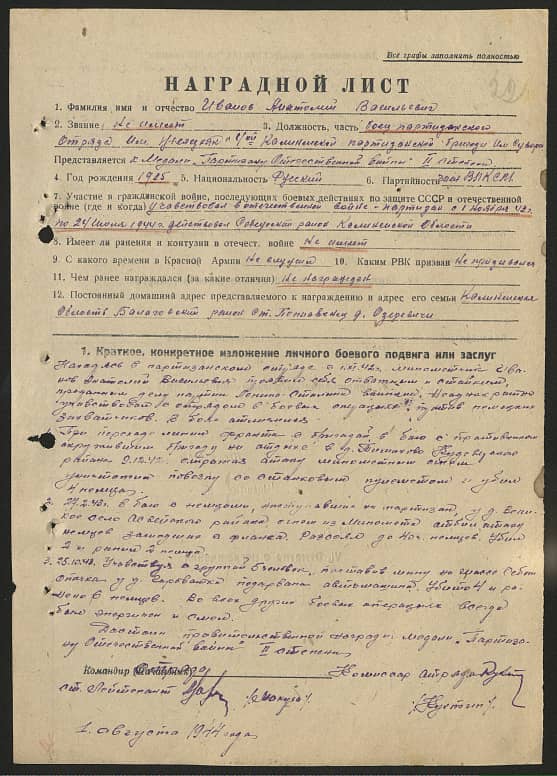 Все графы заполнять полностью
НАГРАДНОЙ ЛИСТ
1. Фамилия имя и отчество Иванов Анатолий Васильевич
2. Звание Не имеет 3. Должность, часть боец партизанского
отряда им. Калининской партизанской бригады им.
Представляется к Медали "Партизану Отечественной войны" II степени
4. Год рождения 1925 5. Национальность Русский 6. Партийность ВЛКСМ
7. Участие в гражданской войне, последующих боевых действиях по защите СССР и отечественной
войне (где и когда) Участвовал в отечественной войне - партизан с 1 ноября 42 г.
по 24 июля Калининской области
8. Имеет ли ранения и контузии в отечест. войне Не имеет
9. С какого времени в Красной Армии Не служил 10. Каким РВК призван Не призывался
11. Чем ранее награждался (за какие отличия) Не награжден
12. Постоянный домашний адрес представляемого к награждению и адрес его семьи Калининская
область район ст. д. Озеревичи
1. Краткое, конкретное изложение личного боевого подвига или заслуг
Находясь в партизанском отряде с 1.XI.42г. минометчик Ива-
нов Анатолий Васильевич проявил себя отважным и стойким,
преданным делу партии Ленина-Сталина воином. Неоднократно
участвовал с отрядом в боевых операциях против немецких
захватчиков. В боях отличился.
1. При переходе линии фронта с бригадой в бою с противником
бригаду на отдыхе в д. Пудевского
района 9.12.42г. отражая атаку минометным огнем
уничтожил повозку со станковым пулеметом и убил
4 немцев.
2. 27.2.43г. в бою с немцами, наступавшими на партизан, у д.
село района огнем из миномета отбил атаку
немцев с фланга. Рассеял до немцев. Убил
2 и ранил немца.
3. 25.10.43г. Участвуя в группе поставив мину на шоссе Себеж
Опочка у д. подорвана автомашина. Убито 4 и ра-
нено 6 немцев. Во всех других боевых операциях всегда
был энергичен и смел.
Достоин правительственной награды медали "Партиза-
ну Отечественной войны" II степени
Командир отряда Комиссар отряда
ст. Лейтенант
1 августа 1944 года